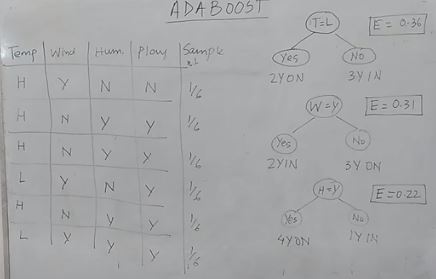 ADABOOST
Temp Wind Hum. Play Sample wt
H Y N N 1/6
H N Y Y 1/6
H N Y Y 1/6
L Y N Y 1/6
H N Y Y 1/6
L Y Y Y 1/6
T=L E = 0.36
Yes No
2Y0N 3Y1N
W=Y E = 0.31
Yes No
2Y1N 3Y0N
H=Y E=0.22
Yes No
4Y0N 1Y1N